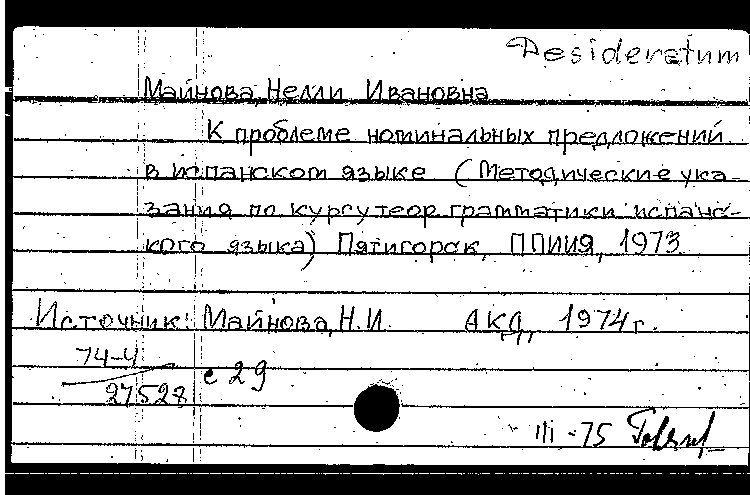 Desideratum
Майнова, Нелли Ивановна
К проблеме номинальных предложений
в испанском языке (Методические ука-
зания по курсу теор. грамматики испанс-
кого языка) Пятигорск, ППИИЯ, 1973
Источник: Майнова, Н.И. АКД, 1974 г.
74-4
27528
с 29
III-75